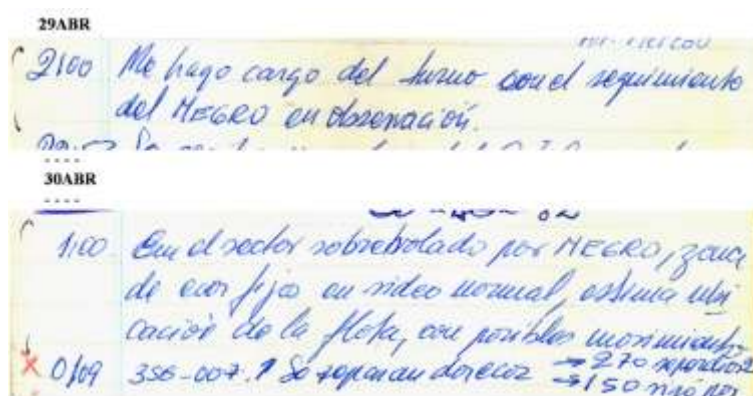 29ABR
2100 Me hago cargo del turno con el seguimiento
del NEGRO en observación.
----
30ABR
----
1:00 En el sector sobrevolado por NEGRO, zona
de ecos fijos en video normal, estima ubi
cación de la flota, con posibles movimientos
X 0109 356-007. Se separan dos ecos → 270
→ 150